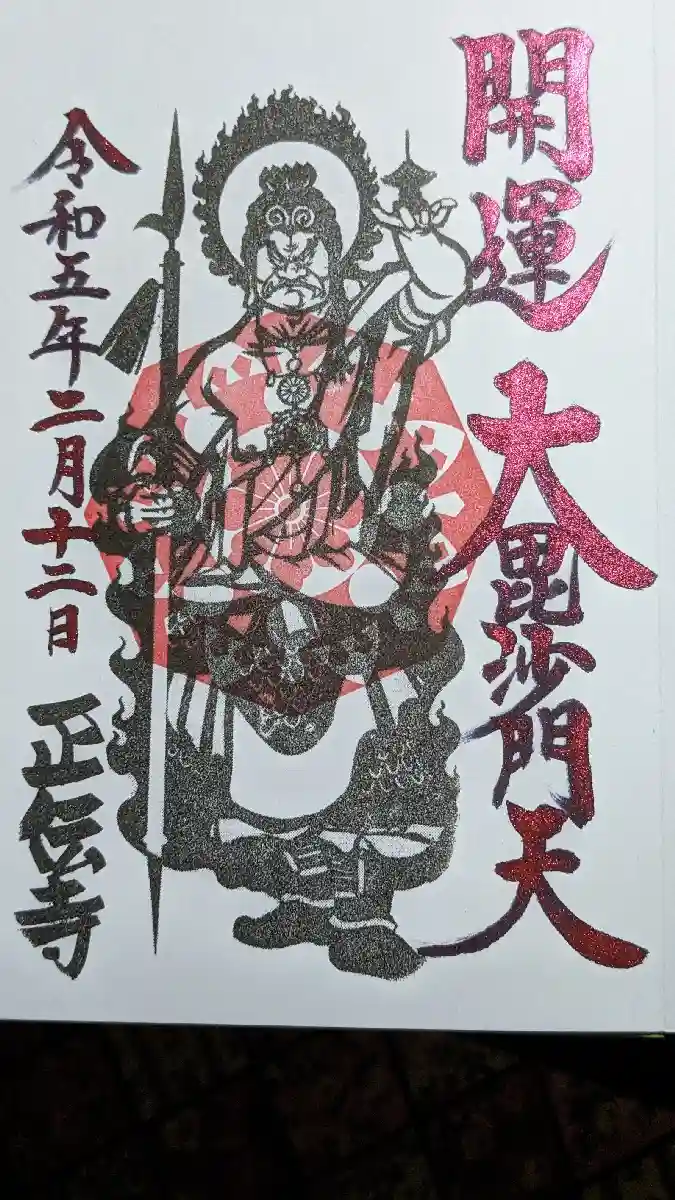 開運大毘沙門天
令和五年二月十二日
正伝寺